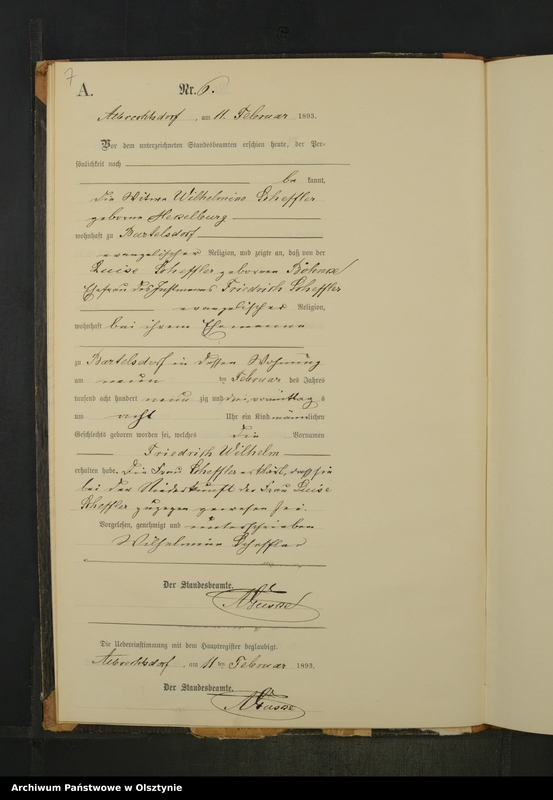 7
A.
Nr. 6.
Albrechtsdorf, am 11. Februar 1893.
Vor dem unterzeichneten Standesbeamten erschien heute, der Per-
sönlichkeit nach
be kannt,
die Witwe Wilhelmine Scheffler
geborne Hesselburg
wohnhaft zu Bartelsdorf
evangelischer Religion, und zeigte an, daß von der
Luise Scheffler geborenen
Ehefrau des Instmanns Friedrich Scheffler
evangelischer Religion,
wohnhaft bei ihrem Ehemanne
zu Bartelsdorf in dessen Wohnung
am neun ten Februar des Jahres
tausend acht hundert neun zig und drei, vormittag s
um acht Uhr ein Kind männlichen
Geschlechts geboren worden sei, welches die Vornamen
Friedrich Wilhelm
erhalten habe. Die Frau Scheffler erklärt, daß sie
bei der Niederkunft der Frau Luise
Scheffler zugegen gewesen sei.
Vorgelesen, genehmigt und unterschrieben
Wilhelmine Scheffler
Der Standesbeamte.
Die Uebereinstimmung mit dem Hauptregister beglaubigt.
Albrechtsdorf, am 11ten Februar 1893.
Der Standesbeamte.
Archiwum Państwowe w Olsztynie